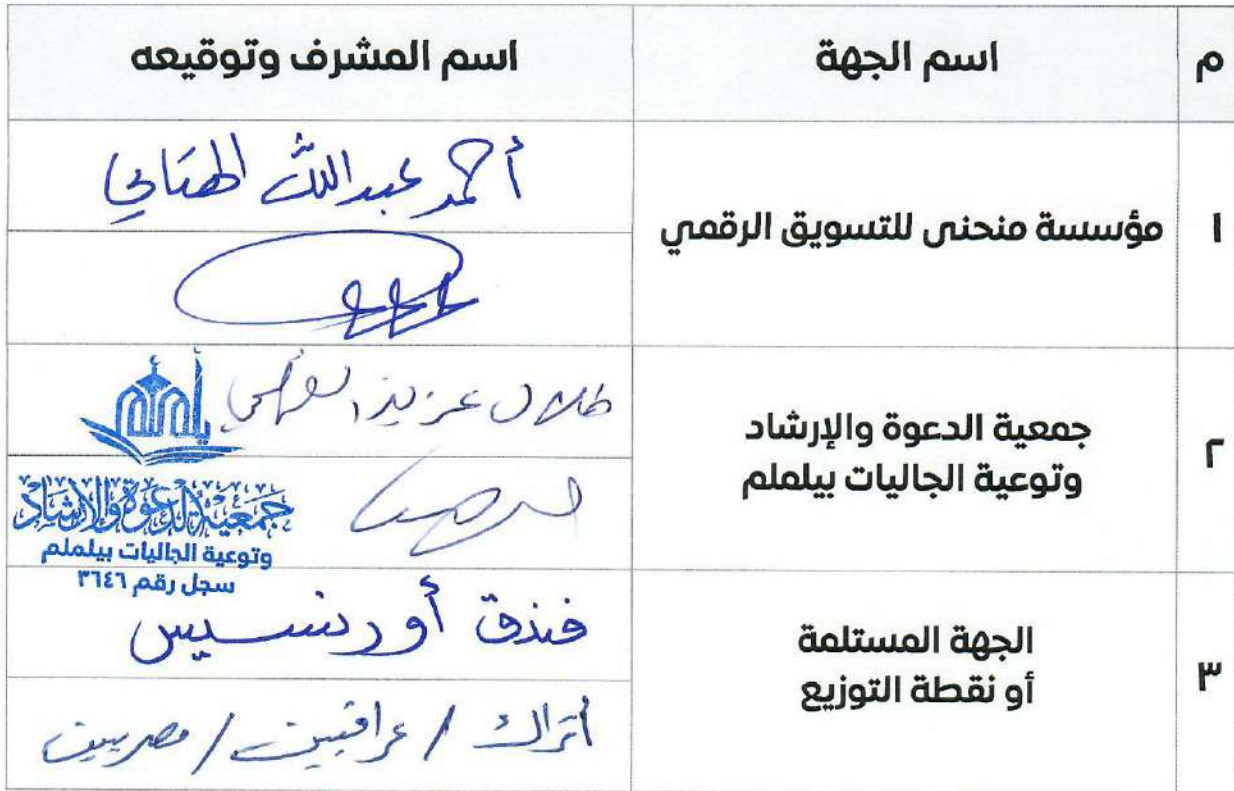 م
اسم الجهة
اسم المشرف وتوقيعه
١
مؤسسة منحنى للتسويق الرقمي
أحمد عبدالله
٢
جمعية الدعوة والإرشاد
وتوعية الجاليات بيلملم
طلال عزيز
يلملم
جمعية الدعوة والإرشاد
وتوعية الجاليات بيلملم
سجل رقم ٣٦٤٦
٣
الجهة المستلمة
أو نقطة التوزيع
فندق
أتراك / عراقيين / مصريين